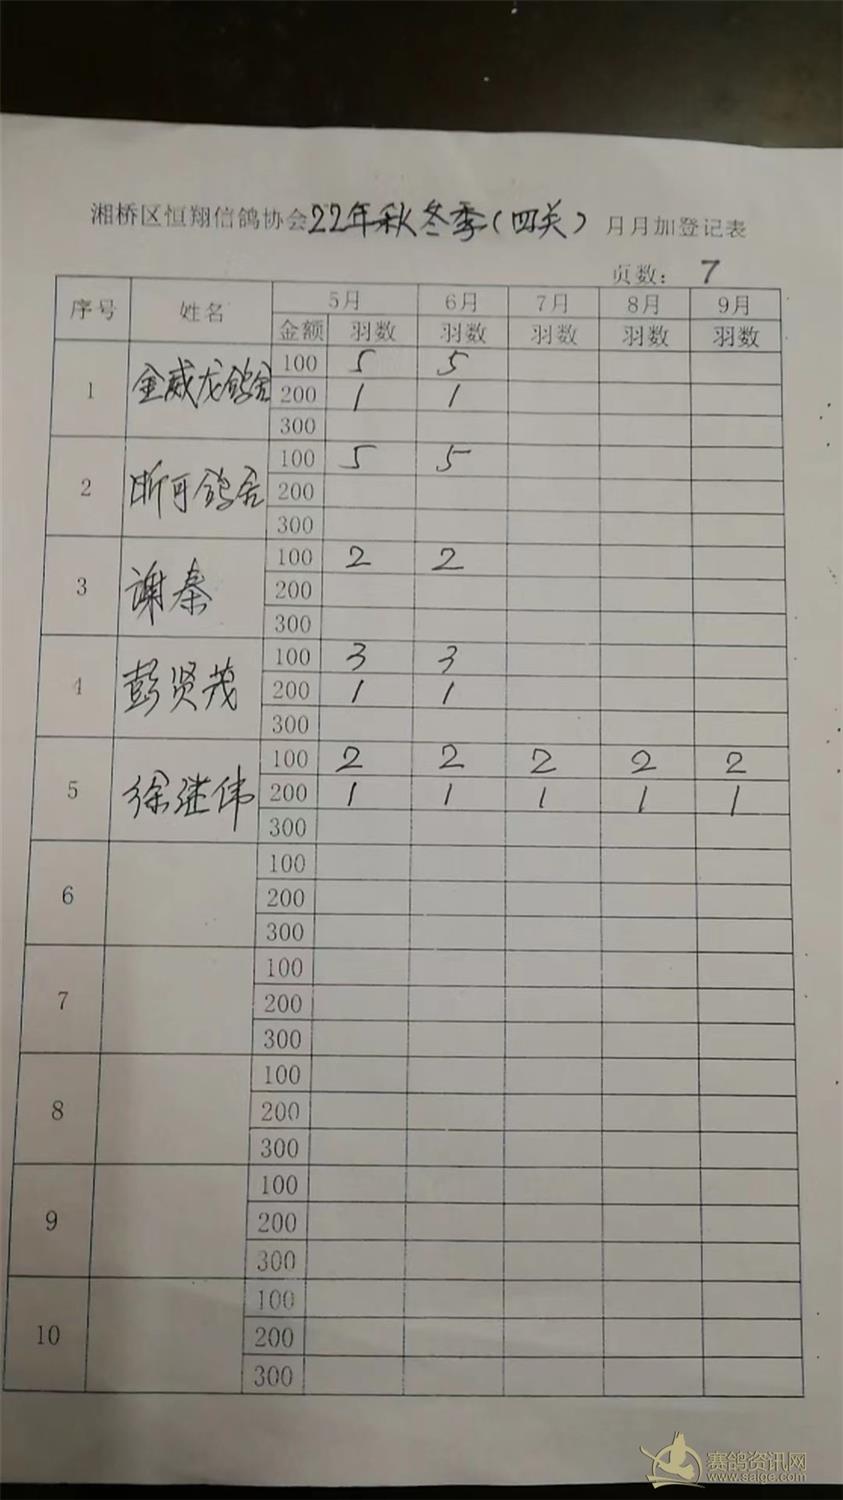 湘桥区恒翔信鸽协会22年秋冬季(四关) 月月加登记表
页数: 7
序号 姓名 5月 6月 7月 8月 9月
金额 羽数 羽数 羽数 羽数 羽数
1 金威龙鸽舍 100 5 5
200 1 1
300
2 昕可鸽舍 100 5 5
200
300
3 谢秦 100 2 2
200
300
4 彭贤茂 100 3 3
200 1 1
300
5 徐继伟 100 2 2 2 2 2
200 1 1 1 1 1
300
6 100
200
300
7 100
200
300
8 100
200
300
9 100
200
300
10 100
200
300
赛鸽资讯网
www.saige.com